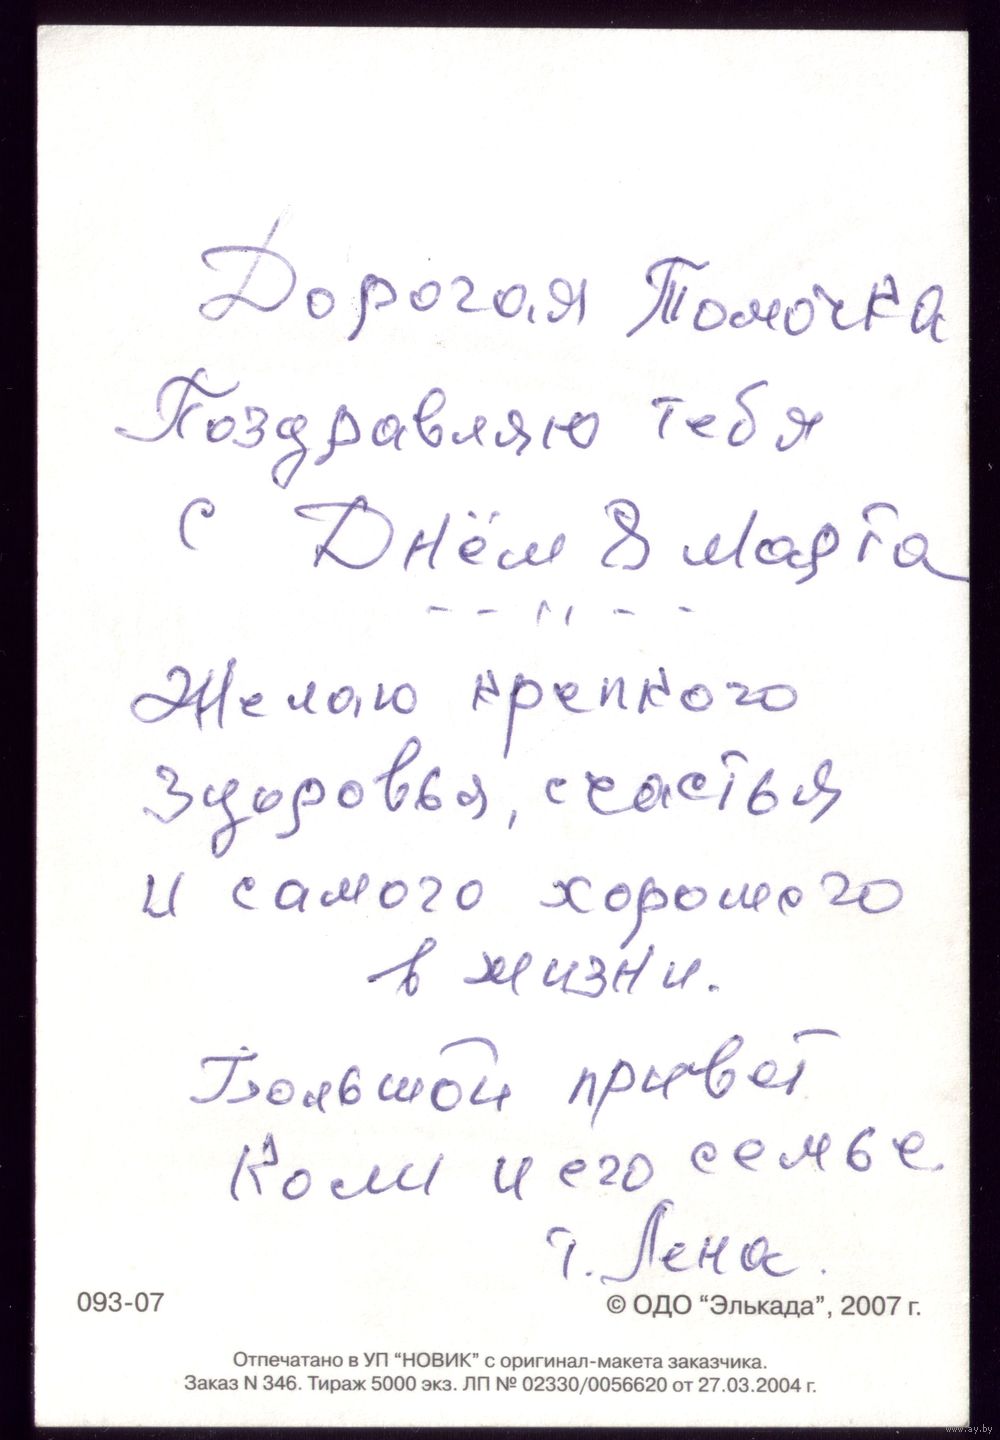 Дорогая Томочка
Поздравляю тебя
с Днём 8 марта
- - " - -
Желаю крепкого
здоровья, счастья
и самого хорошего
в жизни.
Большой привет
Коли и его семье
т. Лена.
093-07
© ОДО “Элькада”, 2007 г.
Отпечатано в УП “НОВИК” с оригинал-макета заказчика.
Заказ N 346. Тираж 5000 экз. ЛП № 02330/0056620 от 27.03.2004 г.
www.ay.by